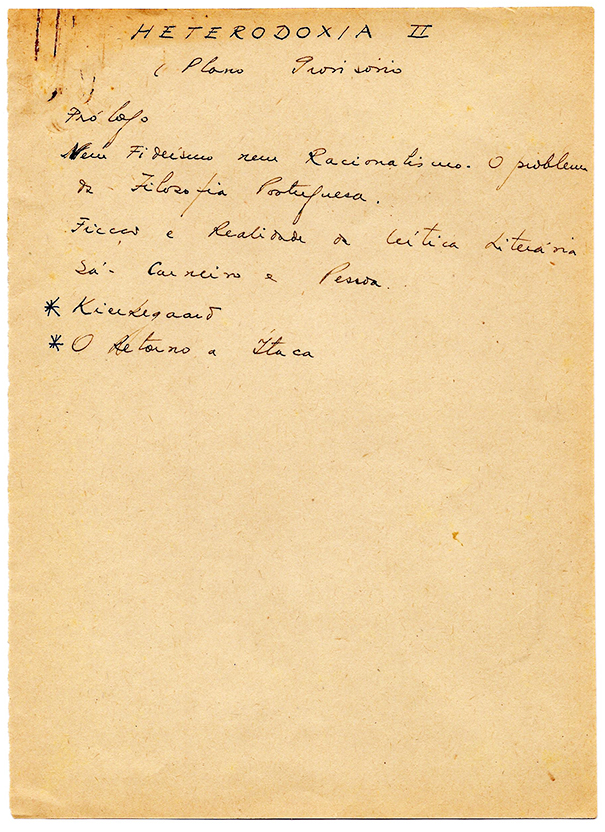 HETERODOXIA II
( Plano Provisório
Prólogo
Nem Fideísmo nem Racionalismo. O problema
da Filosofia Portuguesa.
Ficção e Realidade da Crítica Literária
Sá-Carneiro e Pessoa.
* Kierkegaard
* O Retorno a Ítaca